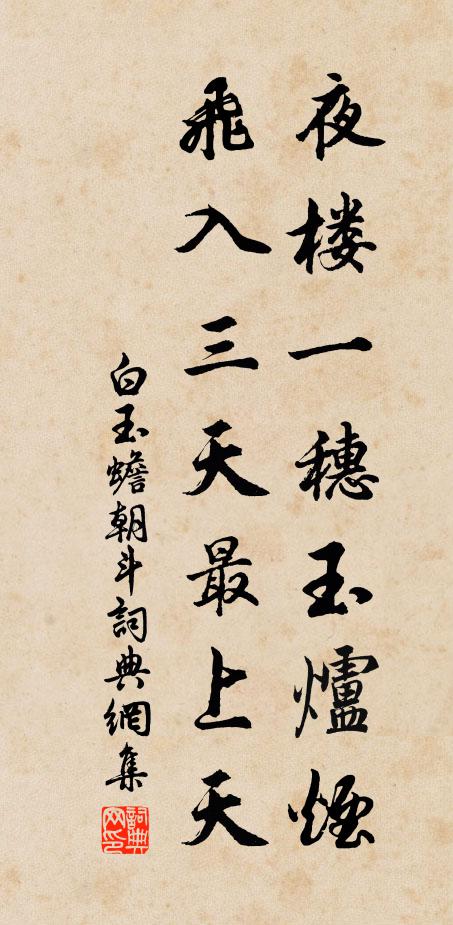 夜楼一穗玉爐煙
飛入三天最上天
白玉蟾朝斗詞典網集
詞典網印